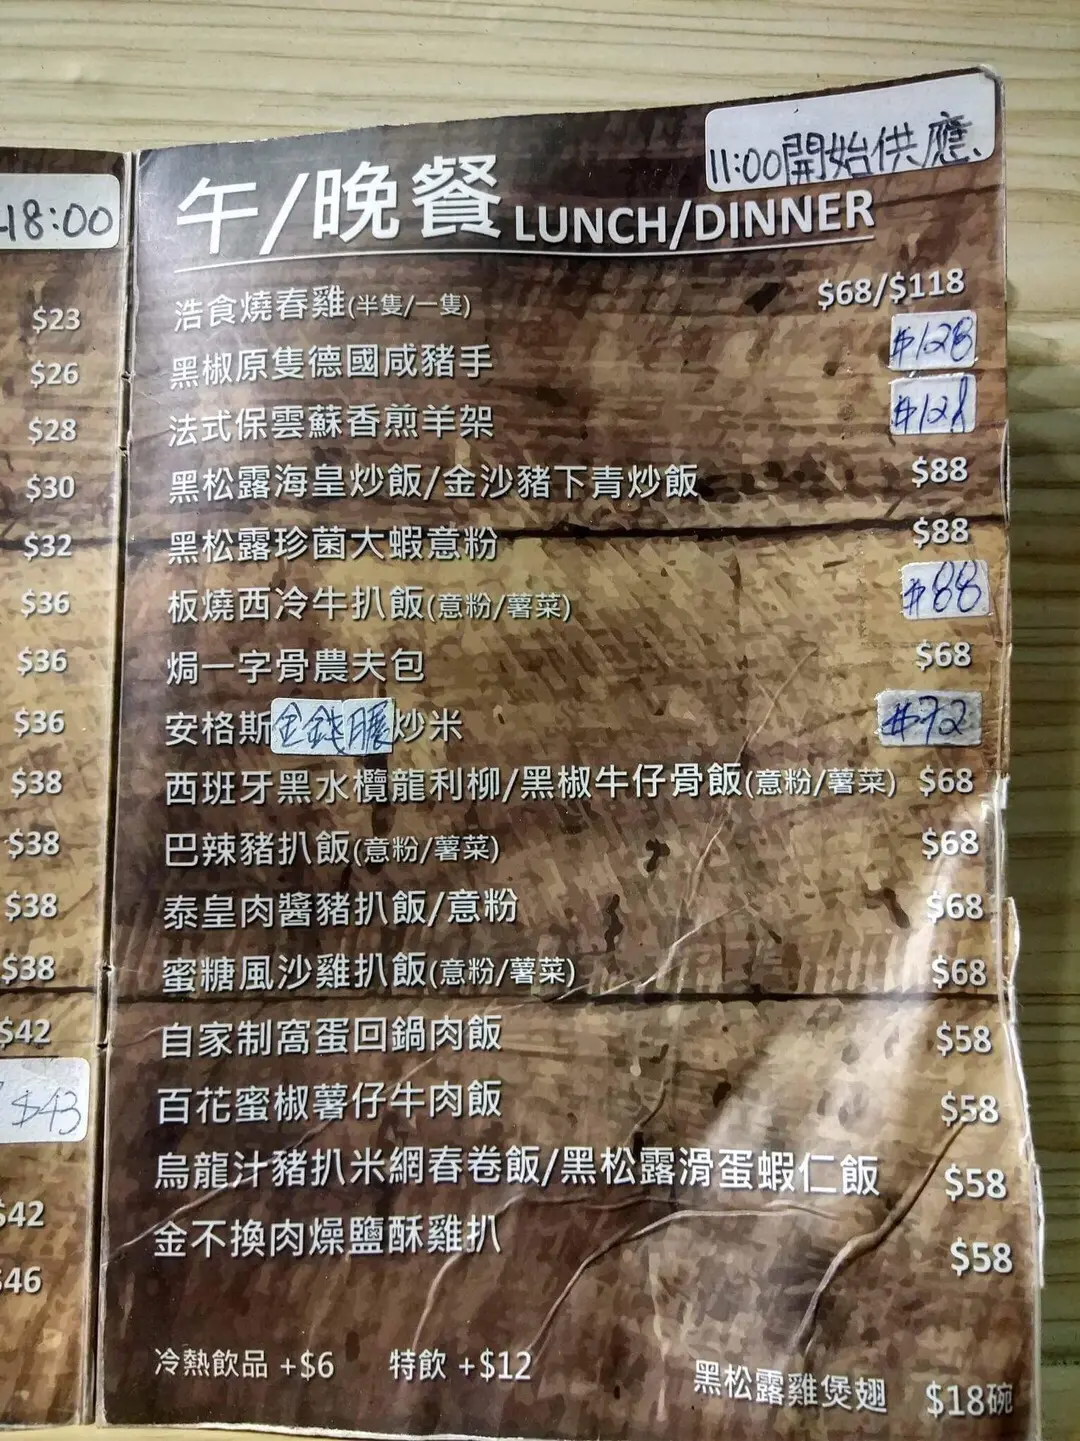 18:00
$23
$26
$28
$30
$32
$36
$36
$36
$38
$38
$38
$38
$42
$43
$42
$46
11:00開始供應
午/晚餐 LUNCH/DINNER
浩食燒春雞(半隻/一隻) $68/$118
黑椒原隻德國咸豬手 $128
法式保雲蘇香煎羊架 $128
黑松露海皇炒飯/金沙豬下青炒飯 $88
黑松露珍菌大蝦意粉 $88
板燒西冷牛扒飯(意粉/薯菜) $88
焗一字骨農夫包 $68
安格斯金錢腱炒米 $72
西班牙黑水欖龍利柳/黑椒牛仔骨飯(意粉/薯菜) $68
巴辣豬扒飯(意粉/薯菜) $68
泰皇肉醬豬扒飯/意粉 $68
蜜糖風沙雞扒飯(意粉/薯菜) $68
自家制窩蛋回鍋肉飯 $58
百花蜜椒薯仔牛肉飯 $58
烏龍汁豬扒米網春卷飯/黑松露滑蛋蝦仁飯 $58
金不換肉燥鹽酥雞扒 $58
冷熱飲品 +$6 特飲 +$12 黑松露雞煲翅 $18碗